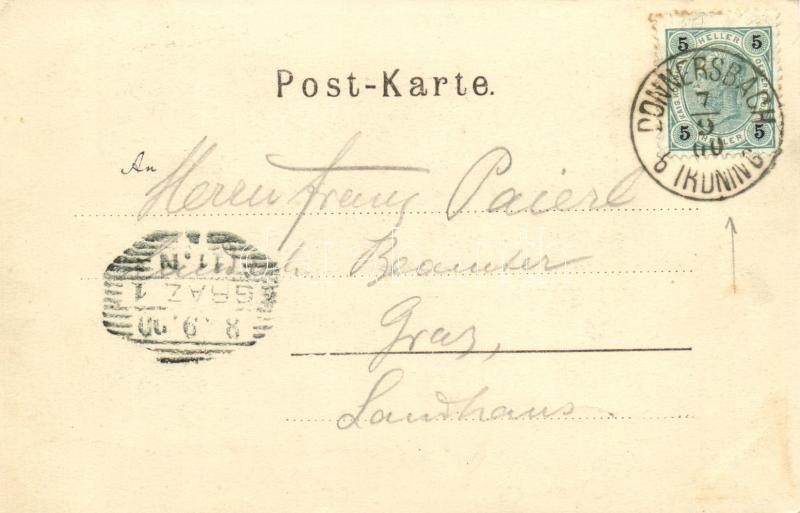 5 HELLER 5
5 HELLER 5
DONNERSBACH
7
9
00
b IRDNING
Post-Karte.
An
Herrn Franz Paierl
Beamter
Graz,
Landhaus.
GRAZ 1
8. 9. 00
11. N